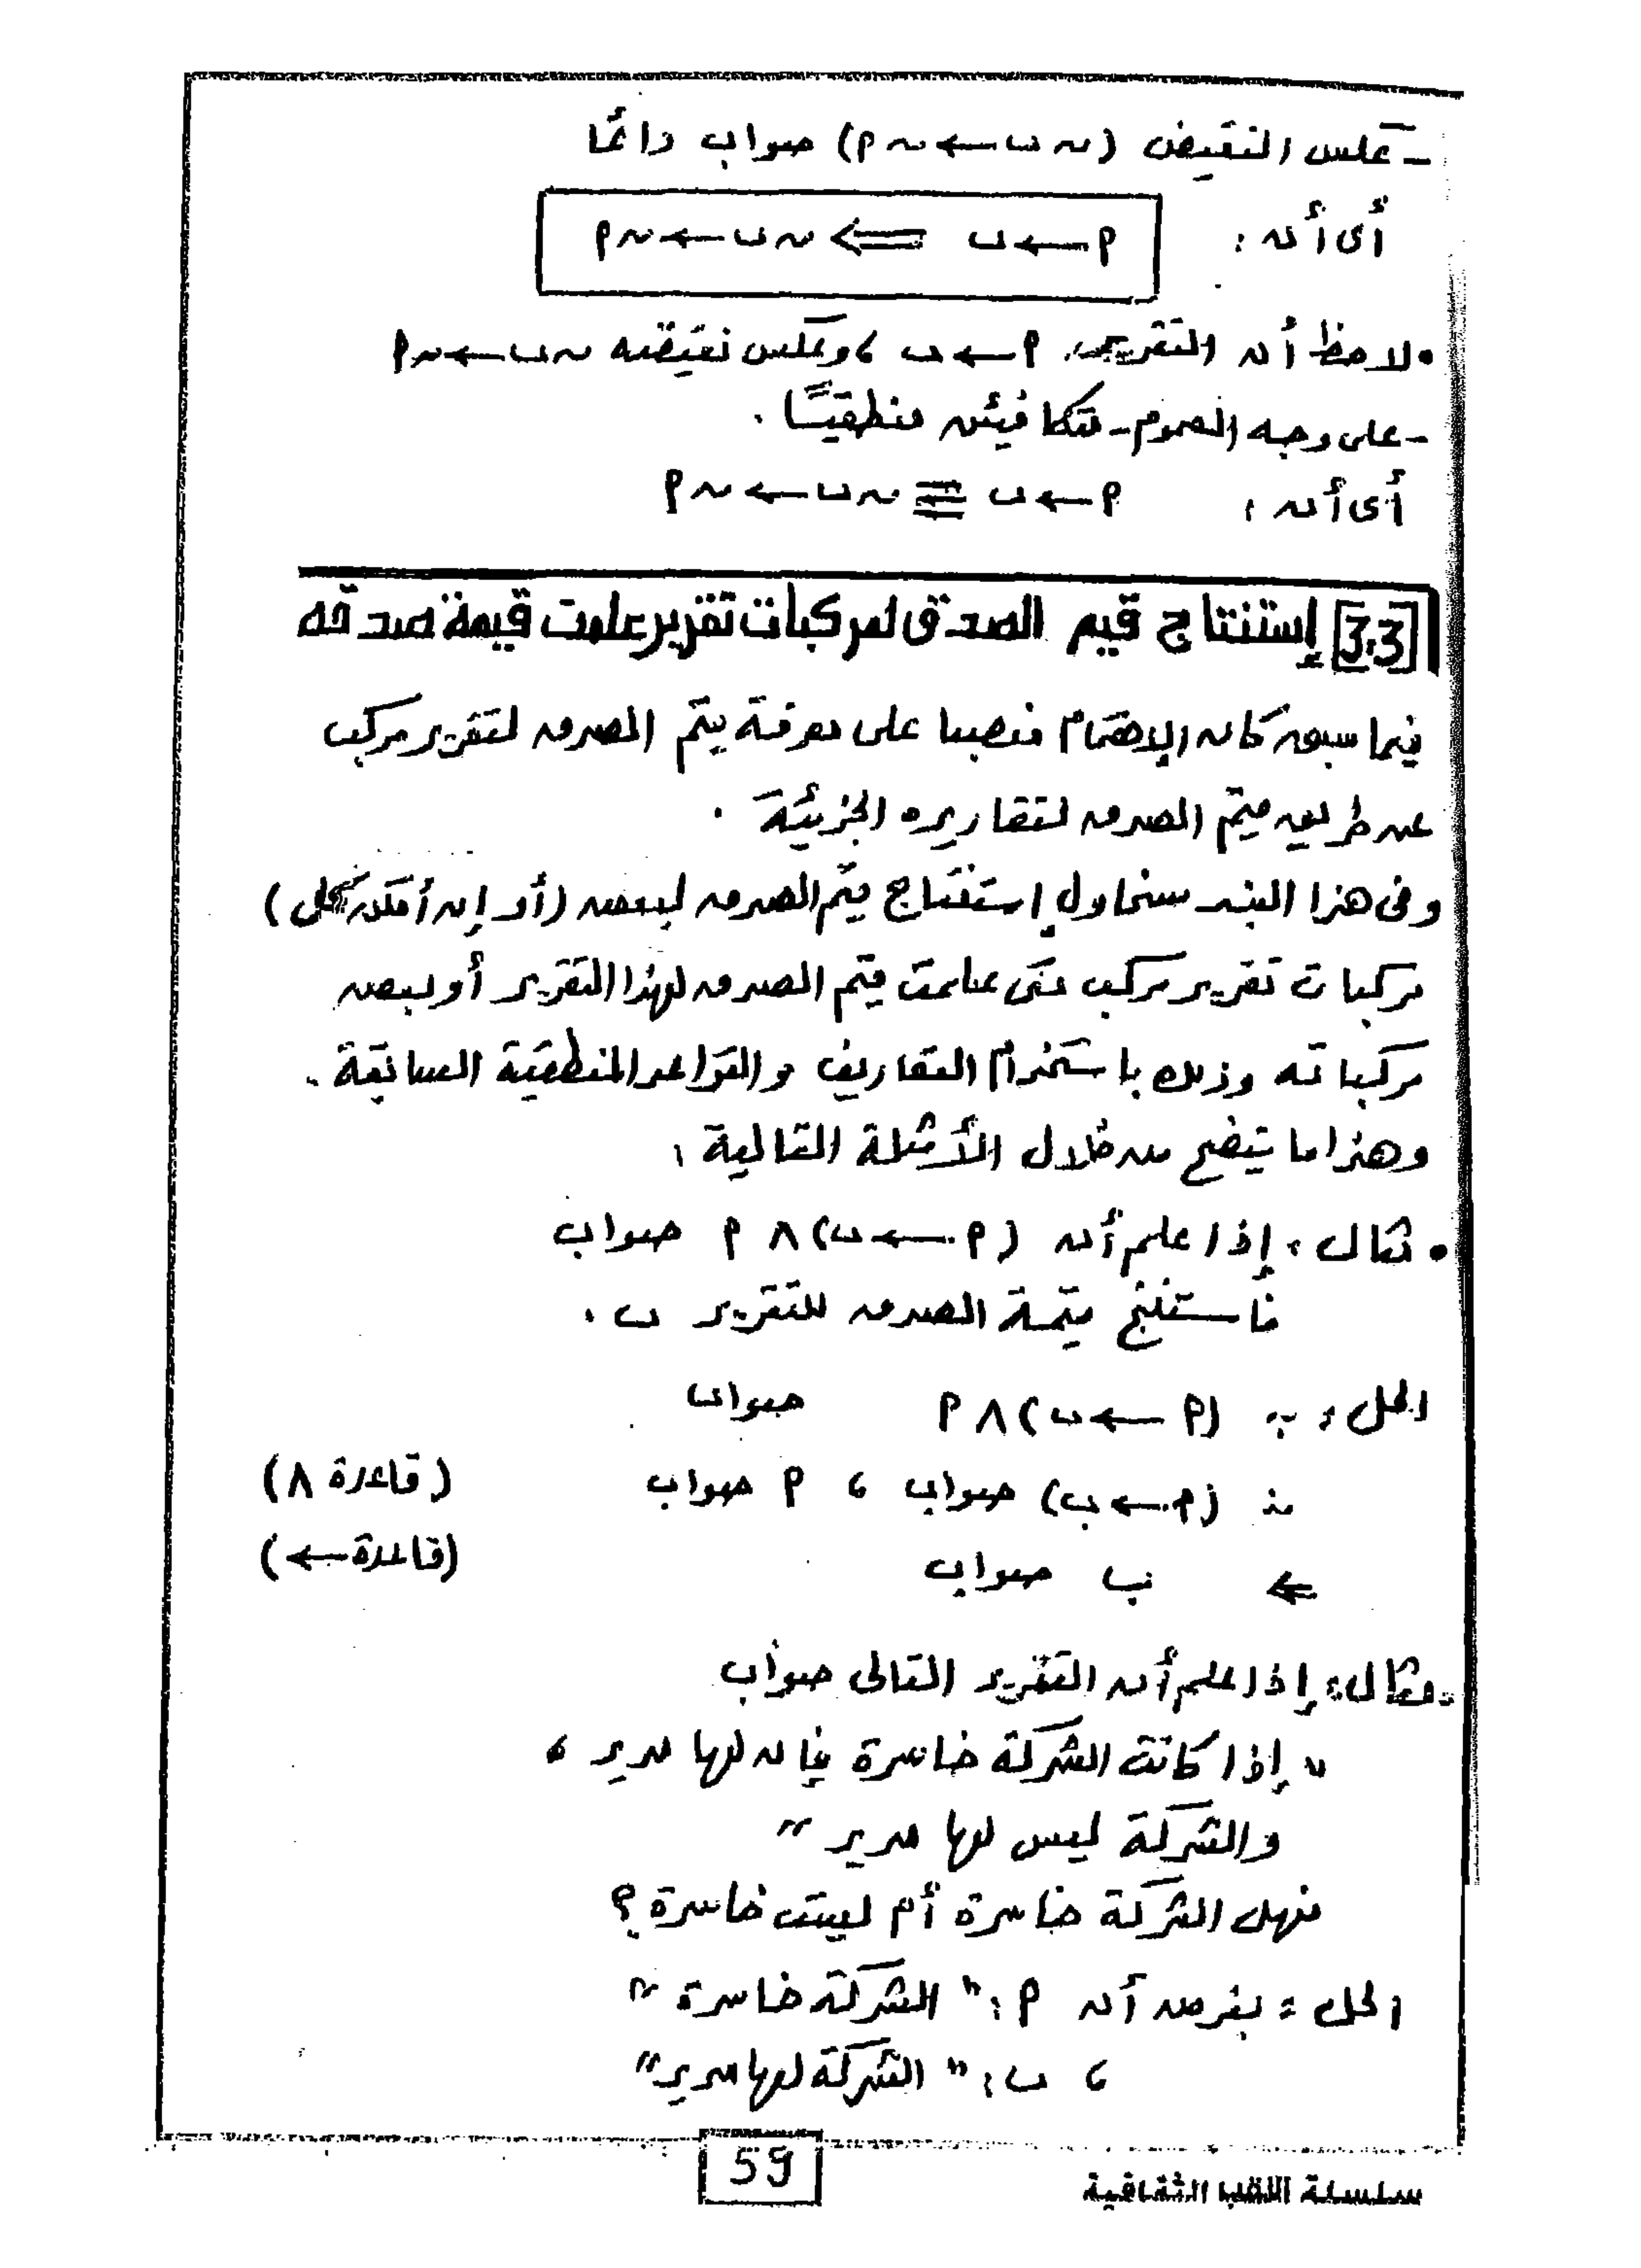 - عكس النقيض (~ب ← ~م) صواب دائمًا
أى أن : م ← ب ⟸ ~ب ← ~م
• لاحظ أن التقريرين م ← ب ، وعكس نقيضه ~ب ← ~م
- على وجه العموم - متكافئين منطقيًا .
أى أن : م ← ب ≡ ~ب ← ~م
[3.3] إستنتاج قيم الصدق لمركبات تقرير علمت قيمة صدقه
فيما سبق كان الإهتمام منصبا على معرفة قيم الصدق لتقرير مركب
عن طريق قيم الصدق لتقاريره الجزيئة .
وفى هذا البند سنحاول إستنتاج قيم الصدق لبعض (أو إن أمكن كل)
مركبات تقرير مركب متى علمت قيم الصدق لهذا التقرير أو لبعض
مركباته وذلك باستخدام التعاريف والقواعد المنطقية السابقة .
وهذا ما يتضح من خلال الأمثلة التالية :
• مثال : إذا علم أن (م ← ب) ∧ م صواب
فاستنتج قيمة الصدق للتقرير ب .
الحل : ∵ (م ← ب) ∧ م صواب
∴ (م ← ب) صواب ، م صواب (قاعدة ∧)
⇐ ب صواب (قاعدة ←)
• مثال : إذا علم أن التقرير التالى صواب
" إذا كانت الشركة خاسرة فإن لها مدير ،
والشركة ليس لها مدير "
فهل الشركة خاسرة أم ليست خاسرة ؟
الحل : بفرض أن م : " الشركة خاسرة "
، ب : " الشركة لها مدير "
59
سلسلة الثقافية